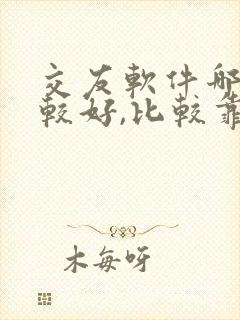 交友軟件哪
較好,比較靠
木每呀